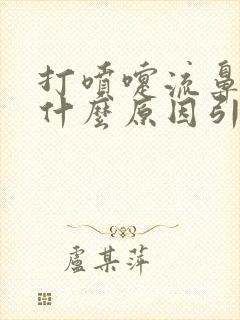 打噴嚏流鼻
什麼原因引
盧某萍